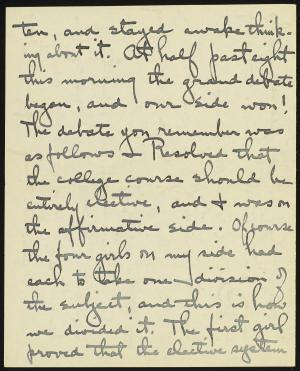 ten, and stayed awake think-
ing about it. At half past eight
this morning the grand debate
began, and our side won!
The debate you remember was
as follows - Resolved that
the college course should be
entirely elective, and I was on
the affirmative side. Of course
the four girls on my side had
each to take one division of
the subject, and this is how
we divided it. The first girl
proved that the elective system